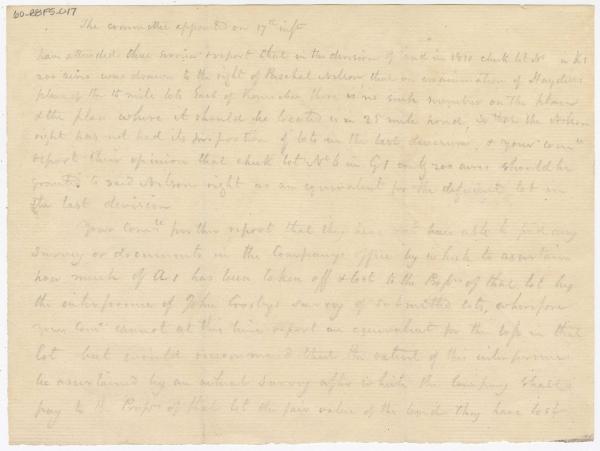 60-BBF5-017
The committee appointed on 17th inst
have attended their service & report that in the division of land in 1811 check lot No
200 acres was drawn to the right of Paschal Nelson that on examination of Hayden's
plan of the 15 mile lots East of Kennebec there is no such number on the plan
& the plan where it should be located is in 25 mile pond, so that the Nelson
right has not had its proportion of lots in the last division, & your Comtee
report their opinion that check lot No 6 in G1 only 200 acres should be
granted to said Nelson right as an equivalent for the deficient lot in
the last division
Your Comtee further report that they have not been able to find any
survey or documents in the Company's office by which to ascertain
how much of A 1 has been taken off & lost to the Proprs of that lot by
the interference of John Crosbys survey of submitted lots, wherefore
your Comtee cannot at this time report an equivalent for the loss in that
lot but would recommend that the extent of this interference
be ascertained by an actual survey after which the Company shall
pay to the Proprs of that lot the fair value of the land they have lost